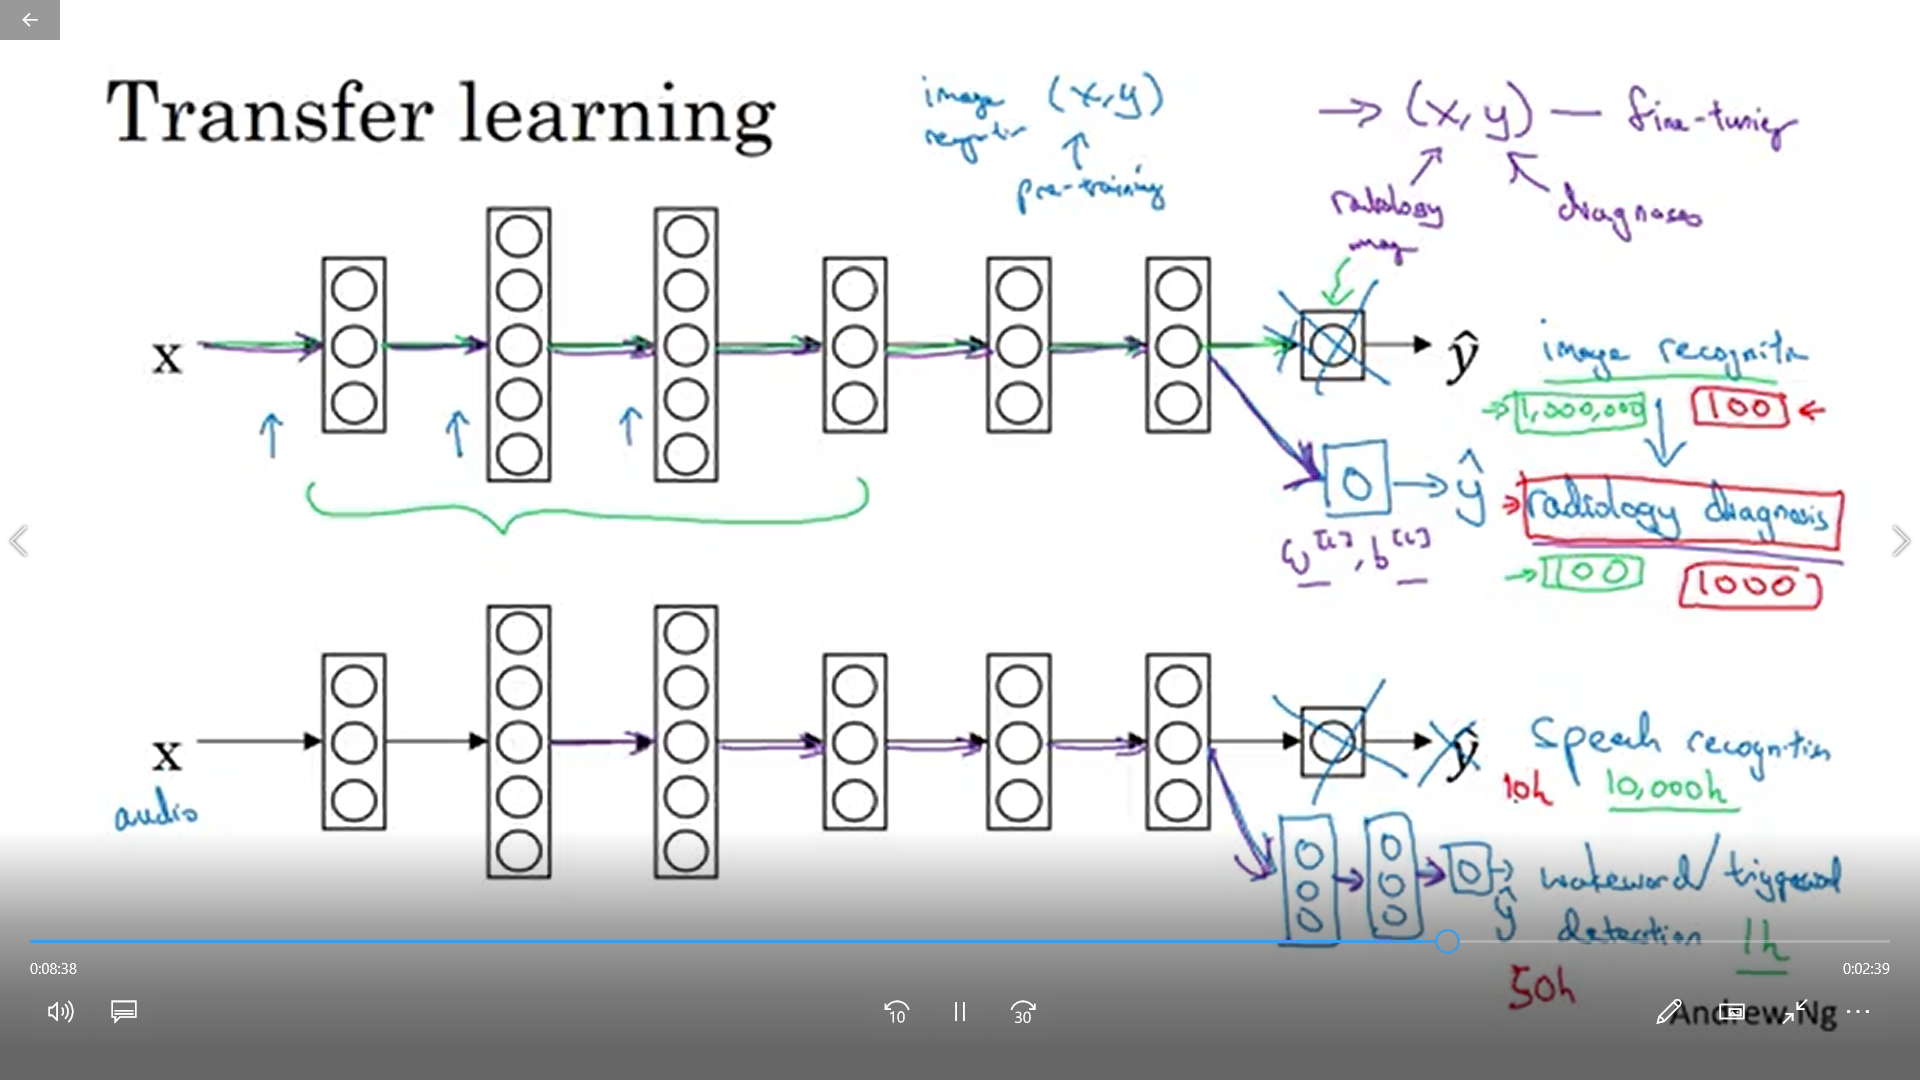 Transfer learning
image (x,y)
pre-training
→ (x,y) — fine-tuning
radiology
diagnoses
x
ŷ
image recognitn
→ 1,000,000 100 ←
ŷ
→ radiology diagnosis
w[L], b[L]
→ 100 1000
x
audio
ŷ
Speech recognition
10h 10,000h
wakeword/triggerword
ŷ
detection 1h
50h
0:08:38
0:02:39
10
30
Andrew Ng